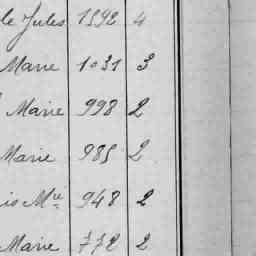 le Jules 1592 4
Marie 1031 3
Marie 998 2
Marie 985 2
is Mie 948 2
Marie 772 2